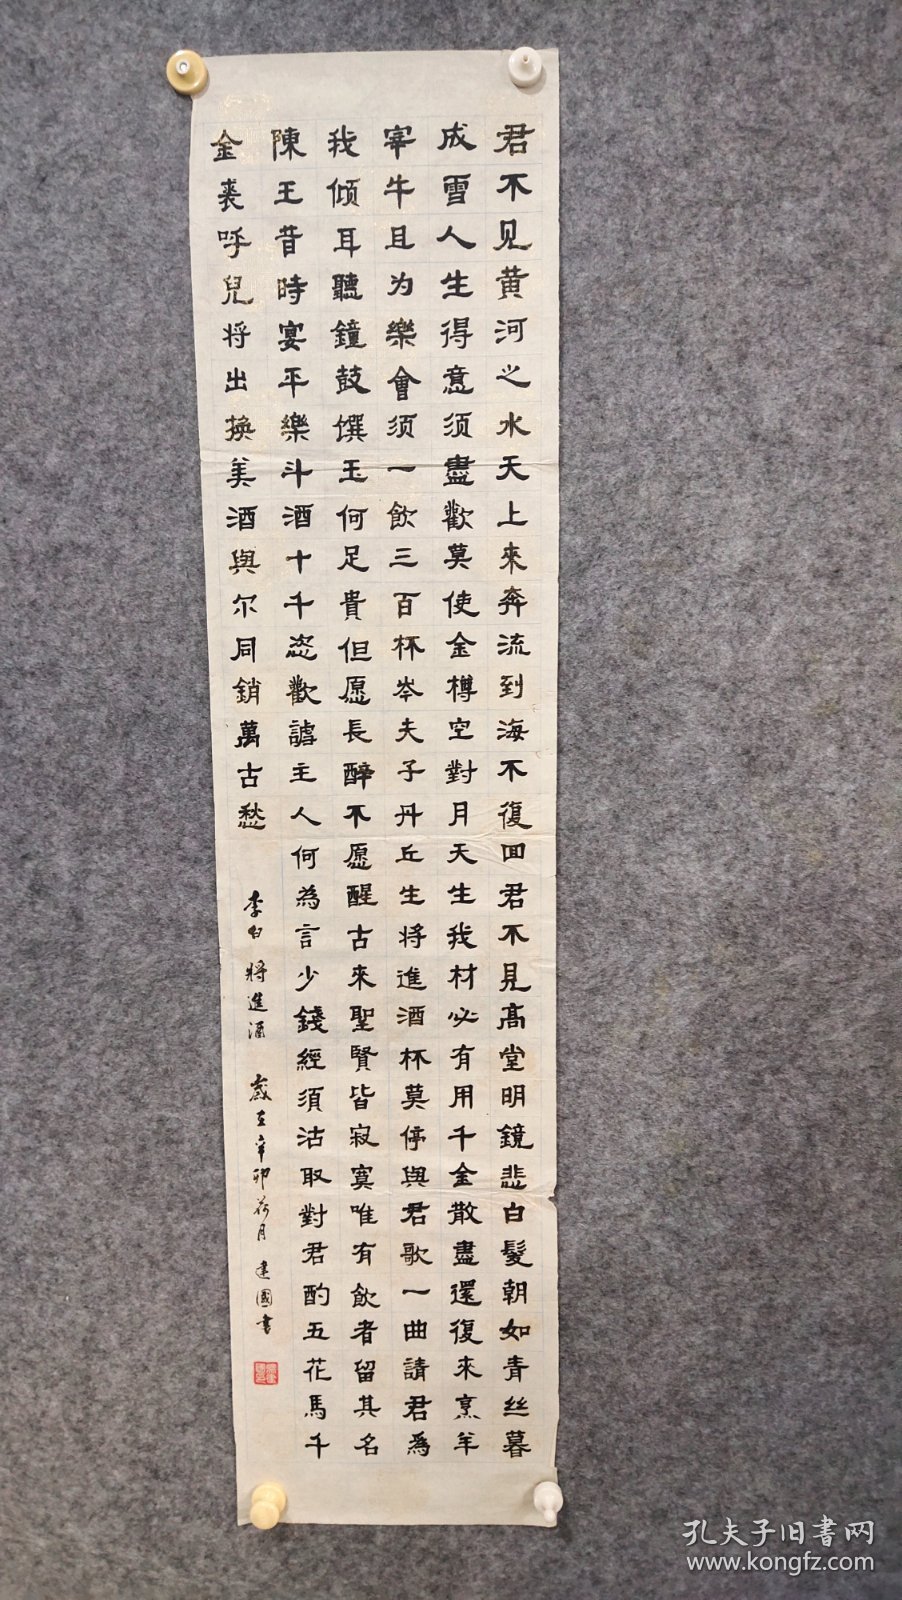 君不见黄河之水天上來奔流到海不復回君不見高堂明鏡悲白髮朝如青丝暮
成雪人生得意须盡歡莫使金樽空對月天生我材必有用千金散盡還復來烹羊
宰牛且为樂會须一飲三百杯岑夫子丹丘生将進酒杯莫停與君歌一曲請君為
我倾耳聽鐘鼓馔玉何足貴但愿長醉不愿醒古來聖賢皆寂寞唯有飲者留其名
陳王昔時宴平樂斗酒十千恣歡謔主人何為言少錢經須沽取對君酌五花馬千
金裘呼兒将出换美酒與尔同銷萬古愁
李白將進酒 歲在辛卯荷月 建國書
孔夫子旧書网
www.kongfz.com